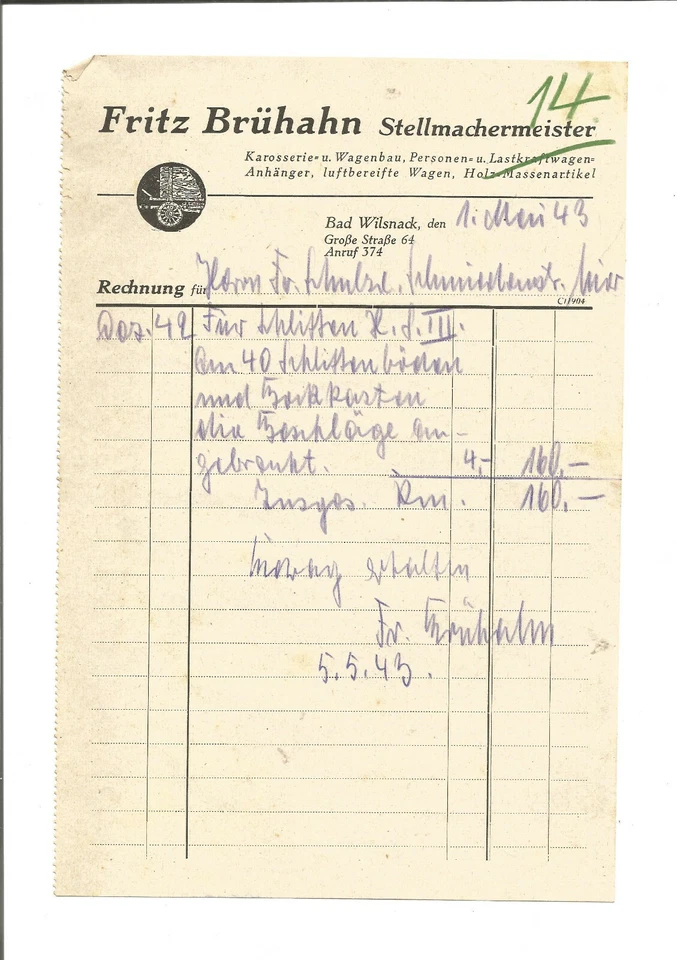 14.
Fritz Brühahn Stellmachermeister
Karosserie- u. Wagenbau, Personen- u. Lastkraftwagen-
Anhänger, luftbereifte Wagen, Holz-Massenartikel
Bad Wilsnack, den 1. Mai 43
Große Straße 64
Anruf 374
Rechnung für Herrn Fr. Schulze, Schmiedemstr. hier
C/1904
Dez. 42 Für Schlitten H. S. III.
an 40 Schlittenböden
und Bockkasten
die Beschläge an-
gebracht. 4,- 160,—
Insges. Rm. 160,—
Betrag erhalten
Fr. Brühahn
5.5.43.